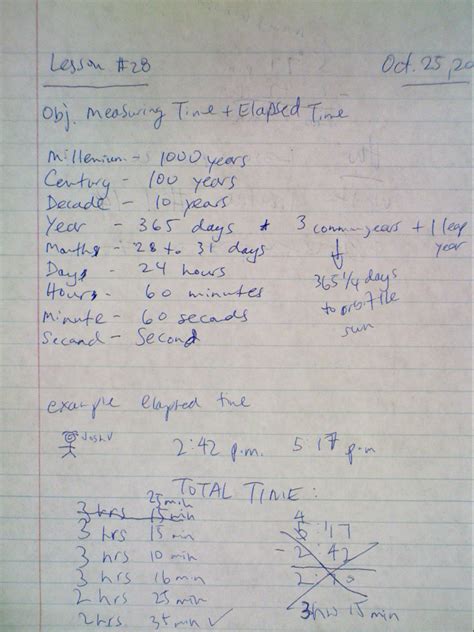 Lesson #28 Oct. 25, 20
Obj. Measuring Time + Elapsed Time
Millenium - 1000 years
Century - 100 years
Decade - 10 years
Year - 365 days * 3 common years + 1 leap year
Months - 28 to 31 days
Days - 24 hours
365 1/4 days
Hours - 60 minutes
to orbit the
Minute - 60 seconds
sun
Second - Second
example elapsed time
Josh V
2:42 p.m. 5:17 p.m
TOTAL TIME:
25 min
3 hrs 15 min
3 hrs 15 min
3 hrs 10 min
3 hrs 16 min
2 hrs 25 min
2 hrs 35 min ✓
4
5:17
- 2:42
3 hrs 15 min